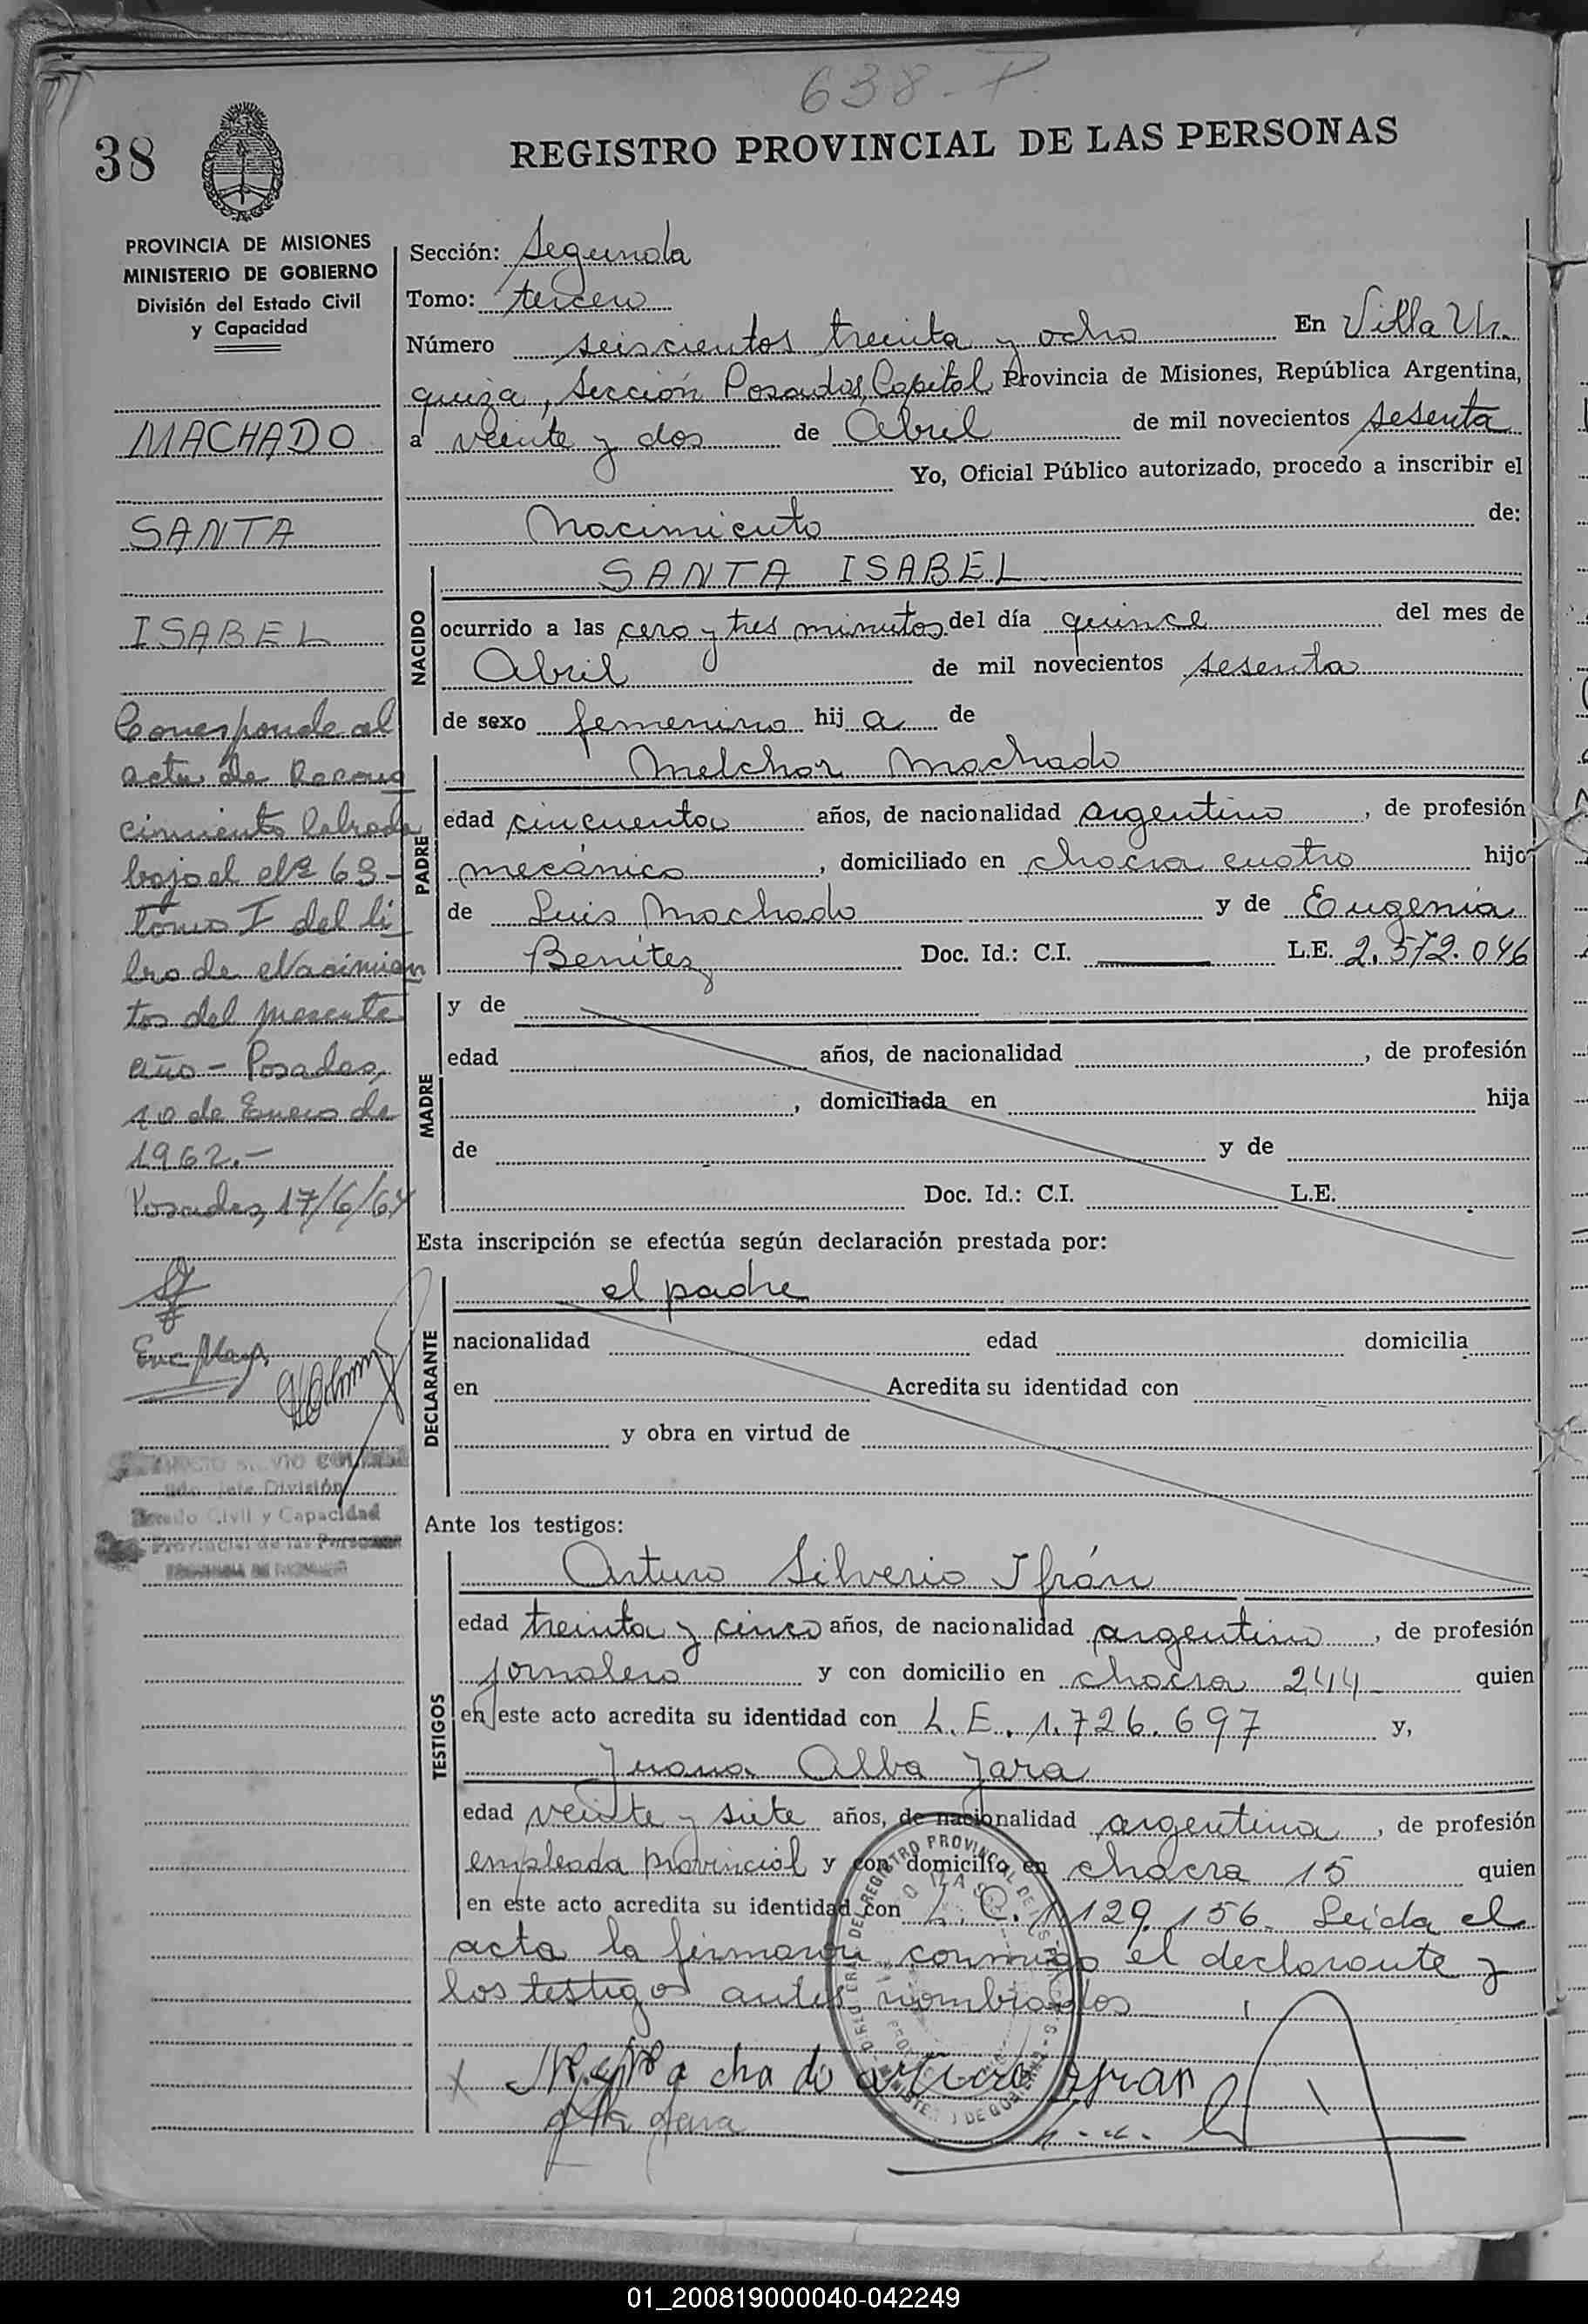 638 - P.
38
REGISTRO PROVINCIAL DE LAS PERSONAS
PROVINCIA DE MISIONES
MINISTERIO DE GOBIERNO
División del Estado Civil
y Capacidad
MACHADO
SANTA
ISABEL
Corresponde al
acta de Recono
cimiento labrada
bajo el Nº 63 -
tomo I del li
bro de Nacimien
tos del presente
año - Posadas,
10 de Enero de
1962.-
Posadas, 17/6/64
División
Estado Civil y Capacidad
Provincial de las Personas
Sección: Segunda
Tomo: tercero
Número seiscientos treinta y ocho En Villa Ur.
quiza, Sección Posadas, Capital Provincia de Misiones, República Argentina,
a veinte y dos de Abril de mil novecientos sesenta
Yo, Oficial Público autorizado, procedo a inscribir el
Nacimiento de:
NACIDO
SANTA ISABEL
ocurrido a las cero y tres minutos del día quince del mes de
Abril de mil novecientos sesenta
de sexo femenino hij a de
PADRE
Melchor Machado
edad cincuenta años, de nacionalidad argentino, de profesión
mecánico, domiciliado en chacra cuatro hijo
de Luis Machado y de Eugenia
Benítez Doc. Id.: C.I. L.E. 2.572.046
MADRE
y de
edad años, de nacionalidad , de profesión
, domiciliada en hija
de y de
Doc. Id.: C.I. L.E.
Esta inscripción se efectúa según declaración prestada por:
DECLARANTE
el padre
nacionalidad edad domicilia
en Acredita su identidad con
y obra en virtud de
Ante los testigos:
TESTIGOS
Arturo Silverio Ifrán
edad treinta y cinco años, de nacionalidad argentino, de profesión
jornalero y con domicilio en chacra 244 quien
en este acto acredita su identidad con L.E. 1.726.697 y,
Juana Alba Jara
edad veinte y siete años, de nacionalidad argentina, de profesión
empleada provincial y con domicilio en chacra 15 quien
en este acto acredita su identidad con L.C. 1.129.156. Leída el
acta la firmaron conmigo el declarante y
los testigos antes nombrados
Machado Arturo Ifran
Jara
01_200819000040-042249